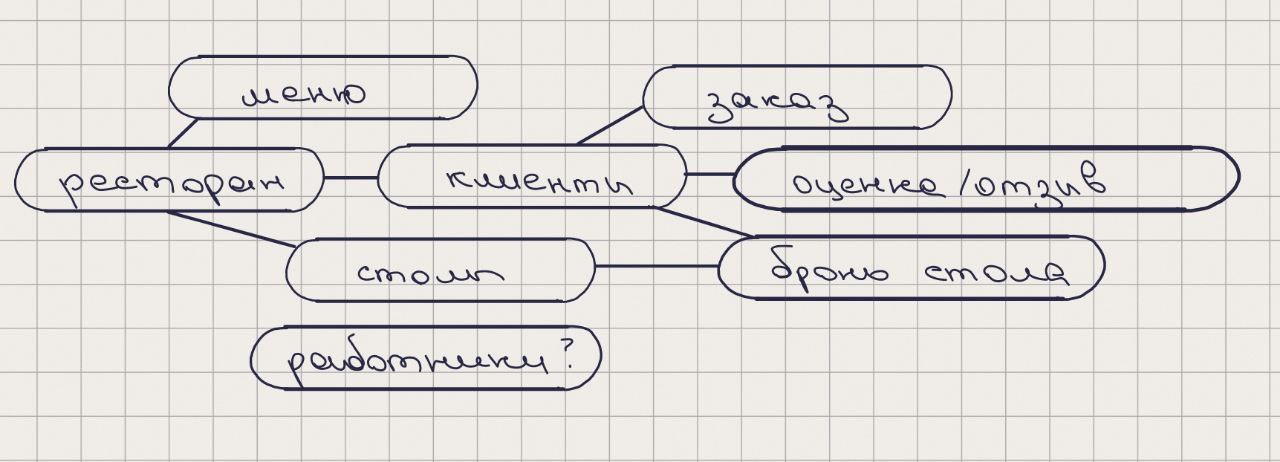 меню
заказ
ресторан
клиенты
оценка/отзыв
столы
бронь стола
работники?